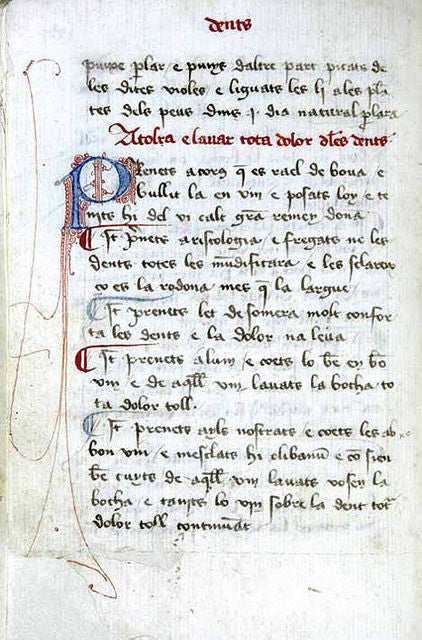 dents
puixe plar e punys daltre part picats de
les dites violes e liguats les li ales plā
tes dels peus dins .i. dia natural plara
A tolra e lauar tota dolor dles dents.
Prenets acorç q̄ es rael de boua e
bullit la en vin e posats loy e te
nits hi del vi calt gra remey dona
Jtē prenets aristologia e fregats ne les
dents totes les mūdificara e les sclaror
ço es la rodona mes q̄ la largue
Jtē prenets let de somera molt confor
ta les dents e la dolor na leua
Jtē prenets alum e coets lo bē en bō
vin e de aq̄ll vin lauats la bocha to
ta dolor toll.
Jtē prenets ayls nostrats e coets les ab
bon vin e mesclats hi olibanū e co sien
bē cuyts de aq̄ll vin lauats vosen la
bocha e tanits lo vin sobre la dent tota
dolor toll continuāt